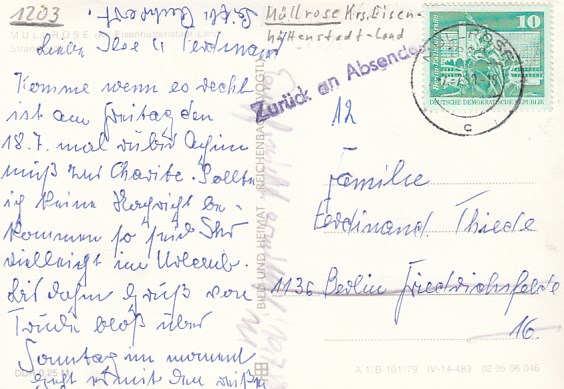 1203
MÜLLROSE Kr. Eisenhüttenstadt-Land
Müllrose Krs. Eisen-
hüttenstadt-Land
Liebe Ilse u Ferdinand
Komme wenn es recht
ist am Freitag den
18.7. mal rüber
muß zur Charite. Sollte
ich keine Nachricht be-
kommen so seid Ihr
vielleicht im Urlaub.
Bis dahin Gruß von
Trude bloß über
Sonntag im moment
geht es mit den
DDR 0,25 M
BILD UND HEIMAT REICHENBACH (VOGTL)
Zurück an Absender
10
DEUTSCHE DEMOKRATISCHE REPUBLIK
MÜLLROSE
c
12
Familie
Ferdinand Thiede
1136 Berlin Friedrichsfelde
16.
A 1/B 101/79 IV-14-483 02 05 06 046